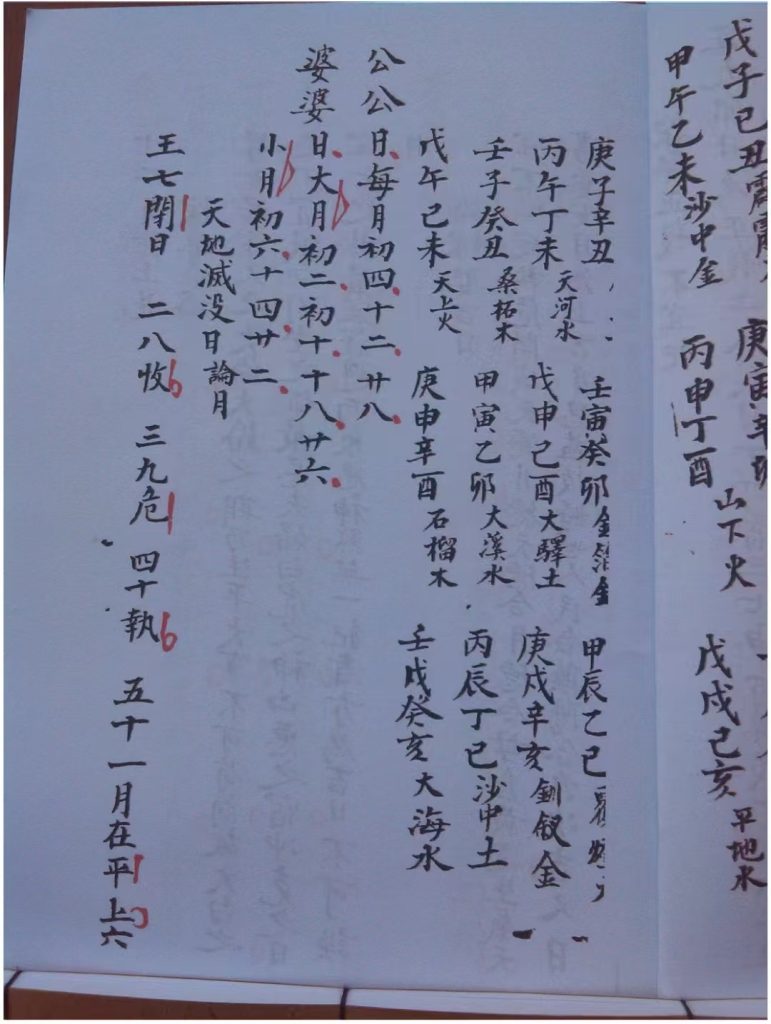 戊子己丑霹
甲午乙未沙中金
庚寅辛
丙申丁酉
山下火
戊戌己亥
平地木
庚子辛丑
丙午丁未 天河水
壬子癸丑 桑柘木
戊午己未 天上火
壬寅癸卯 金箔金
戊申己酉 大驛土
甲寅乙卯 大溪水
庚申辛酉 石榴木
甲辰乙巳
庚戌辛亥 釧釵金
丙辰丁巳 沙中土
壬戌癸亥 大海水
公公日每月初四十二廿八
婆婆日大月初二初十十八廿六
小月初六十四廿二
天地滅没日論月
王七閉日 二八收 三九危 四十執 五十一月在平上六